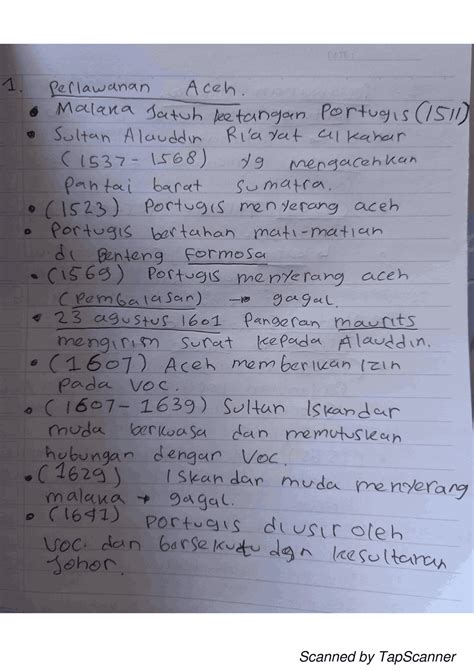 1. Perlawanan Aceh.
• Malaka Jatuh ketangan Portugis (1511)
• Sultan Alauddin Ri'ayat alkahar
(1537 - 1568) yg mengacehkan
Pantai barat Sumatra.
• (1523) Portugis menyerang aceh
• Portugis bertahan mati-matian
di Benteng Formosa
• (1569) Portugis menyerang aceh
(Pembalasan) → gagal.
• 23 agustus 1601 Pangeran maurits
mengirim surat kepada Alauddin.
• (1607) Aceh memberikan Izin
pada VOC.
• (1607 - 1639) Sultan Iskandar
muda berkuasa dan memutuskan
hubungan dengan VOC.
• (1629) Iskandar muda menyerang
malaka → gagal.
• (1641) Portugis diusir oleh
VOC dan bersekutu dgn kesultanan
Johor.
Scanned by TapScanner